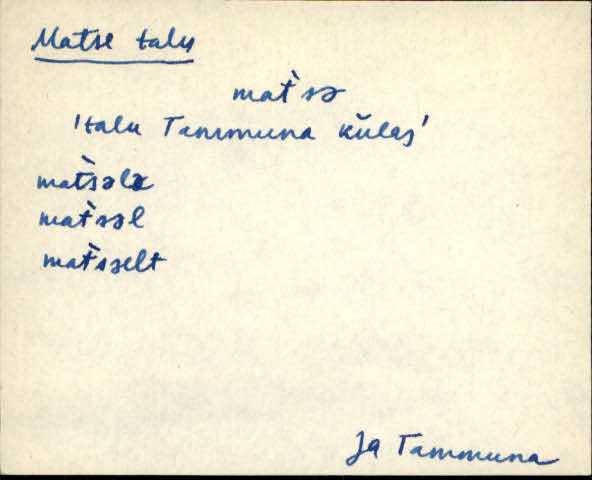 Matse talu
mat̀sə
'talu Tammuna külas'
mat̀sələ
mat̀səl
mat̀səlt
Jä Tammuna